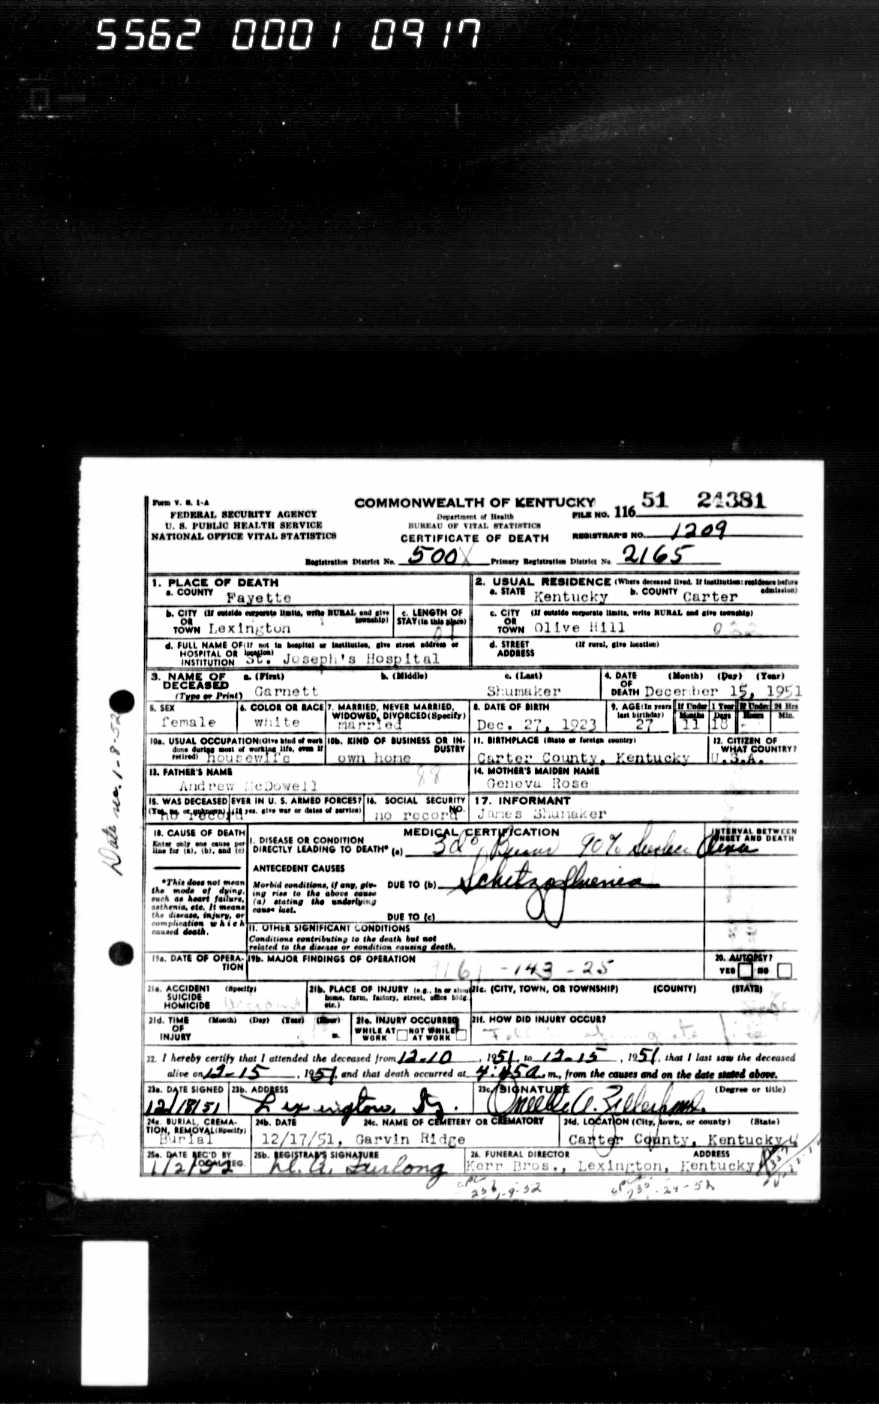 5562 0001 0917
Form V. S. 1-A
FEDERAL SECURITY AGENCY
U. S. PUBLIC HEALTH SERVICE
NATIONAL OFFICE VITAL STATISTICS
COMMONWEALTH OF KENTUCKY
Department of Health
BUREAU OF VITAL STATISTICS
CERTIFICATE OF DEATH
FILE NO. 116 51 24381
REGISTRAR'S NO. 1209
Registration District No. 500X Primary Registration District No. 2165
1. PLACE OF DEATH
a. COUNTY Fayette
2. USUAL RESIDENCE (Where deceased lived. If institution: residence before admission)
a. STATE Kentucky b. COUNTY Carter
b. CITY (If outside corporate limits, write RURAL and give township)
OR
TOWN Lexington
c. LENGTH OF STAY (in this place)
c. CITY (If outside corporate limits, write RURAL and give township)
OR
TOWN Olive Hill
d. FULL NAME OF (If not in hospital or institution, give street address or location)
HOSPITAL OR
INSTITUTION St. Joseph's Hospital
d. STREET ADDRESS (If rural, give location)
3. NAME OF DECEASED (Type or Print)
a. (First) b. (Middle) c. (Last)
Garnett Shumaker
4. DATE OF DEATH (Month) (Day) (Year)
December 15, 1951
5. SEX
female
6. COLOR OR RACE
white
7. MARRIED, NEVER MARRIED, WIDOWED, DIVORCED (Specify)
married
8. DATE OF BIRTH
Dec. 27, 1923
9. AGE (In years last birthday)
27
If Under 1 Year Months Days
11 18
If Under 24 Hrs Hours Min.
10a. USUAL OCCUPATION (Give kind of work done during most of working life, even if retired)
housewife
10b. KIND OF BUSINESS OR INDUSTRY
own home
11. BIRTHPLACE (State or foreign country)
Carter County, Kentucky
12. CITIZEN OF WHAT COUNTRY?
U.S.A.
13. FATHER'S NAME
Andrew McDowell
88
14. MOTHER'S MAIDEN NAME
Geneva Rose
15. WAS DECEASED EVER IN U. S. ARMED FORCES?
(Yes, no, or unknown) (If yes, give war or dates of service)
no record
16. SOCIAL SECURITY NO.
no record
17. INFORMANT
James Shumaker
18. CAUSE OF DEATH
Enter only one cause per line for (a), (b), and (c)
*This does not mean the mode of dying, such as heart failure, asthenia, etc. It means the disease, injury, or complication which caused death.
MEDICAL CERTIFICATION
INTERVAL BETWEEN ONSET AND DEATH
I. DISEASE OR CONDITION DIRECTLY LEADING TO DEATH* (a) 3d° Burns 90% Surface Area
ANTECEDENT CAUSES
Morbid conditions, if any, giving rise to the above cause (a) stating the underlying cause last.
DUE TO (b) Schitzophrenia
DUE TO (c)
II. OTHER SIGNIFICANT CONDITIONS
Conditions contributing to the death but not related to the disease or condition causing death.
19a. DATE OF OPERATION
19b. MAJOR FINDINGS OF OPERATION
-143-25
20. AUTOPSY?
YES NO
21a. ACCIDENT SUICIDE HOMICIDE (Specify)
21b. PLACE OF INJURY (e.g., in or about home, farm, factory, street, office bldg., etc.)
21c. (CITY, TOWN, OR TOWNSHIP) (COUNTY) (STATE)
21d. TIME OF INJURY (Month) (Day) (Year) (Hour) m.
21e. INJURY OCCURRED
WHILE AT WORK NOT WHILE AT WORK
21f. HOW DID INJURY OCCUR?
22. I hereby certify that I attended the deceased from 12-10, 1951, to 12-15, 1951, that I last saw the deceased
alive on 12-15, 1951, and that death occurred at 4:45A.m., from the causes and on the date stated above.
23a. DATE SIGNED
12/18/51
23b. ADDRESS
Lexington, Ky.
23c. SIGNATURE (Degree or title)
24a. BURIAL, CREMATION, REMOVAL (Specify)
Burial
24b. DATE
12/17/51,
24c. NAME OF CEMETERY OR CREMATORY
Garvin Ridge
24d. LOCATION (City, town, or county) (State)
Carter County, Kentucky
25a. DATE REC'D BY LOCAL REG.
1/2/52
25b. REGISTRAR'S SIGNATURE
Furlong
26. FUNERAL DIRECTOR ADDRESS
Kerr Bros., Lexington, Kentucky
Date rec. 1-8-52